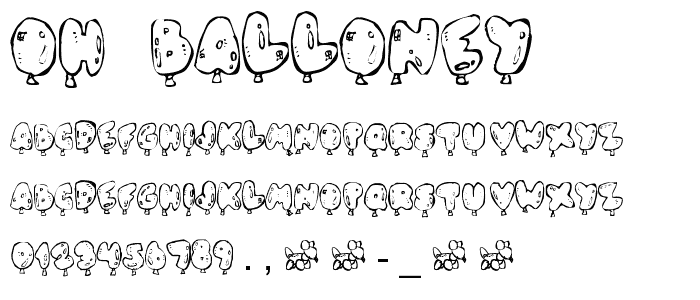 ON BALLONEY
ABCDEFGHIJKLMNOPQRSTUVWXYZ
ABCDEFGHIJKLMNOPQRSTUVWXYZ
0123456789 . , - _